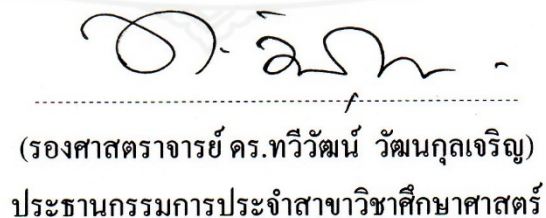 (รองศาสตราจารย์ ดร.ทวีวัฒน์ วัฒนกุลเจริญ)
ประธานกรรมการประจำสาขาวิชาศึกษาศาสตร์